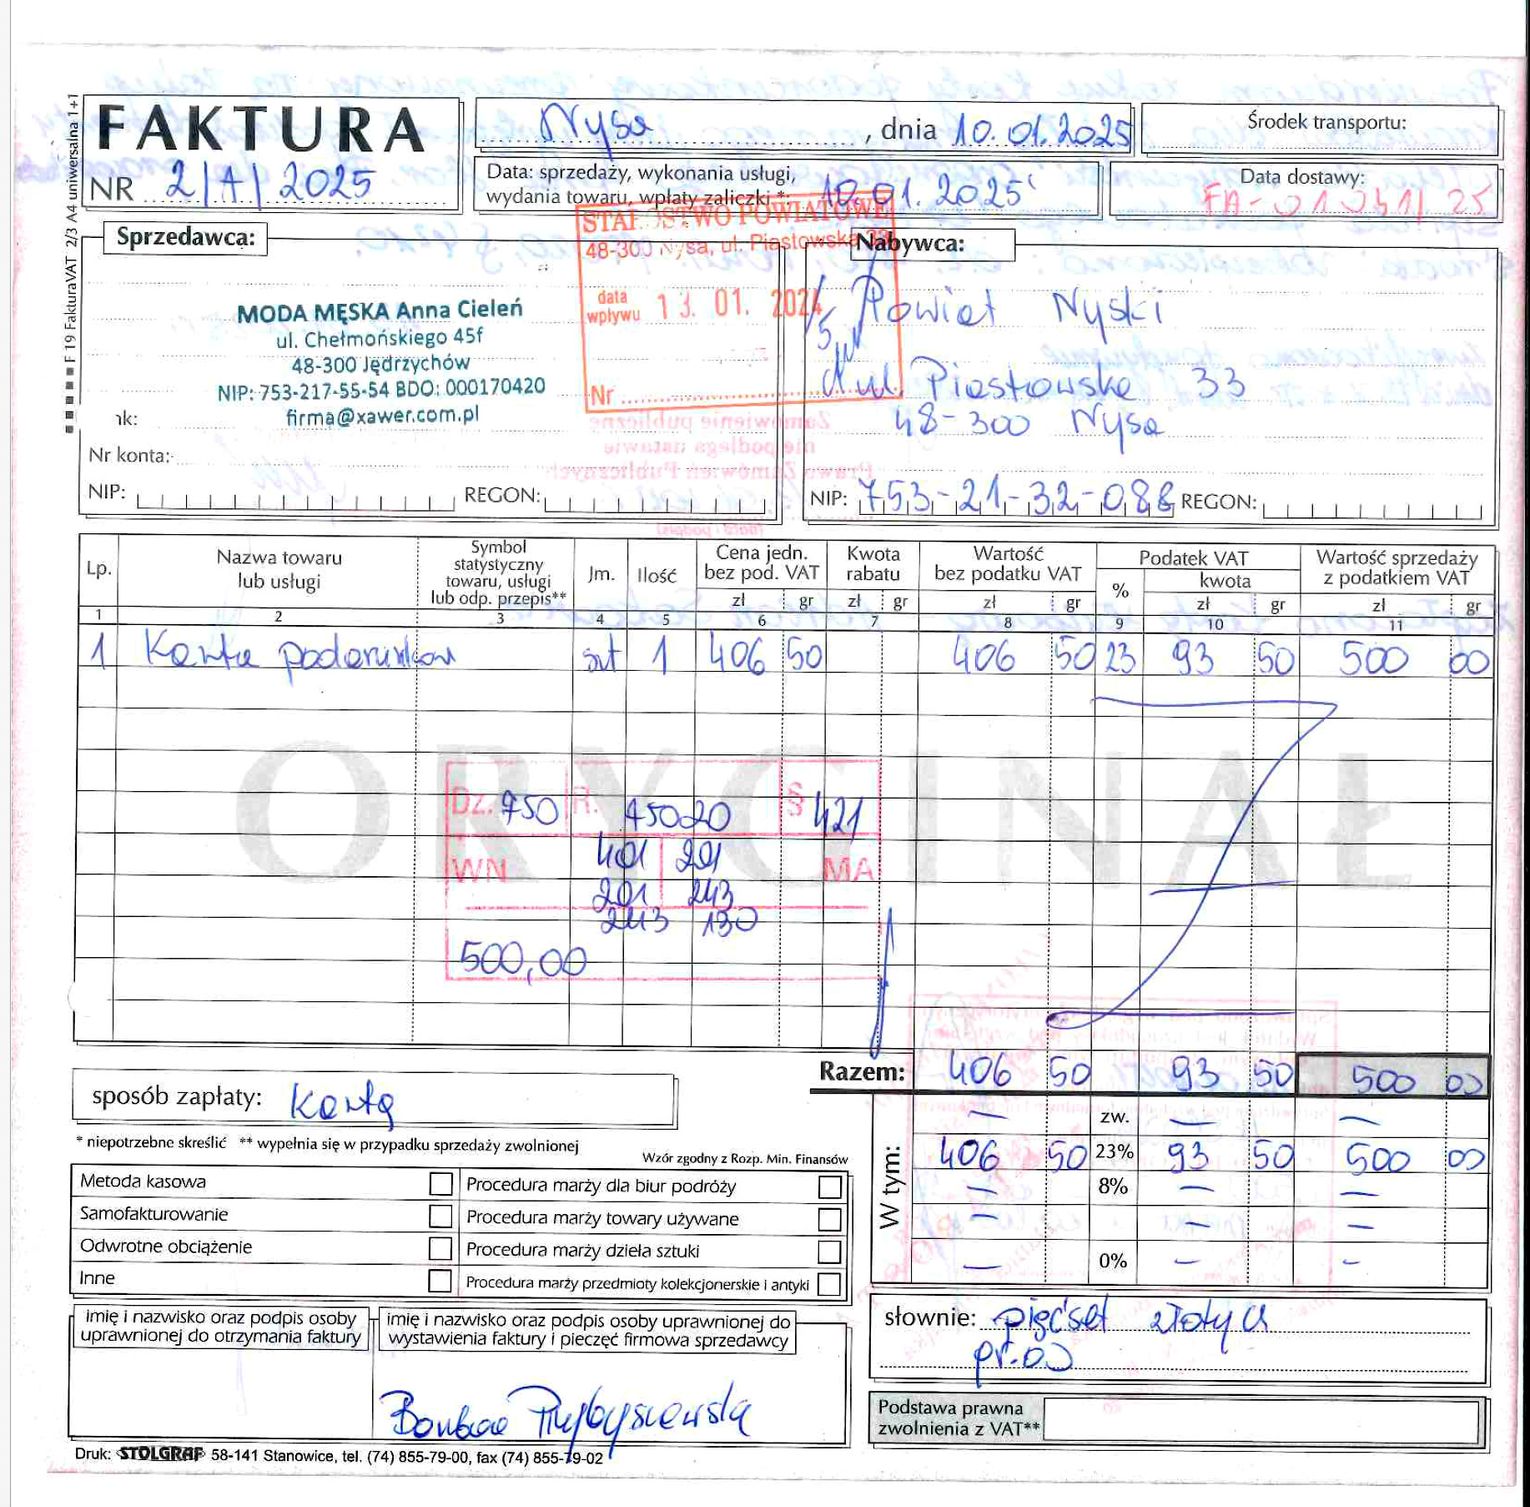 F 19 FakturaVAT 2/3 A4 uniwersalna 1+1
FAKTURA
NR 2/A/2025
Nysa, dnia 10.01.2025
Środek transportu:
Data: sprzedaży, wykonania usługi,
wydania towaru, wpłaty zaliczki * 10.01.2025
Data dostawy:
FA-01 0341/25
Sprzedawca:
MODA MĘSKA Anna Cieleń
ul. Chełmońskiego 45f
48-300 Jędrzychów
NIP: 753-217-55-54 BDO: 000170420
firma@xawer.com.pl
nk:
Nr konta:
NIP: REGON:
STAROSTWO POWIATOWE
48-300 Nysa, ul. Piastowska 33
data
wpływu 13. 01. 2024
Nr
Nabywca:
Powiat Nyski
ul. Piastowska 33
48-300 Nysa
NIP: 753-21-32-088 REGON:
Lp. Nazwa towaru lub usługi Symbol statystyczny towaru, usługi lub odp. przepis** Jm. Ilość Cena jedn. bez pod. VAT Kwota rabatu Wartość bez podatku VAT Podatek VAT Wartość sprzedaży z podatkiem VAT
zł gr zł gr zł gr % kwota zł gr zł gr
1 2 3 4 5 6 7 8 9 10 11
1 Karta podarunkowa szt 1 406 50 406 50 23 93 50 500 00
ORYGINAŁ
Dz. 750 R. 75020 § 421
WN 401 201 MA
201 243
243 130
500,00
Razem: 406 50 93 50 500 00
sposób zapłaty: Kartą
W tym:
— zw. — —
406 50 23% 93 50 500 00
— 8% — —
— — —
— 0% — —
* niepotrzebne skreślić ** wypełnia się w przypadku sprzedaży zwolnionej
Wzór zgodny z Rozp. Min. Finansów
Metoda kasowa Procedura marży dla biur podróży
Samofakturowanie Procedura marży towary używane
Odwrotne obciążenie Procedura marży dzieła sztuki
Inne Procedura marży przedmioty kolekcjonerskie i antyki
imię i nazwisko oraz podpis osoby
uprawnionej do otrzymania faktury
imię i nazwisko oraz podpis osoby uprawnionej do
wystawienia faktury i pieczęć firmowa sprzedawcy
słownie: pięćset złotych
gr.00
Podstawa prawna
zwolnienia z VAT**
Druk: STOLGRAF 58-141 Stanowice, tel. (74) 855-79-00, fax (74) 855-79-02